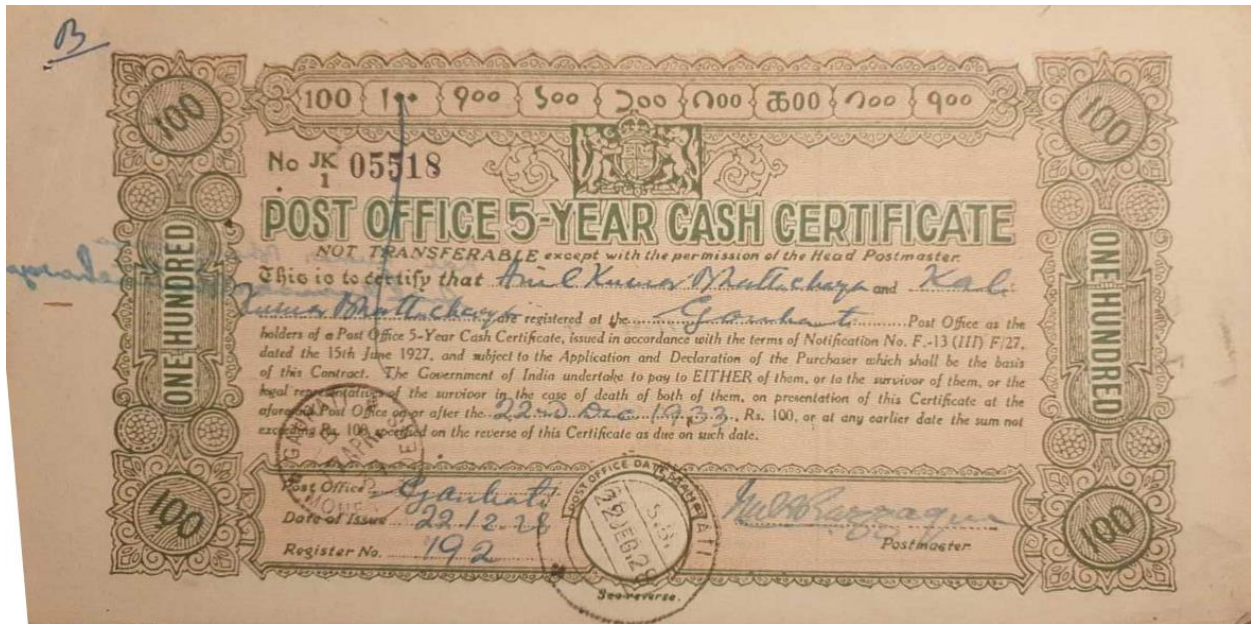 B
100 | ১০০ | १०० | ১০০ | ၁၀၀ | ೧೦೦ | ௧00 | ૧૦૦ | १००
100
100
No JK/1 05518
POST OFFICE 5-YEAR CASH CERTIFICATE
NOT TRANSFERABLE except with the permission of the Head Postmaster.
This is to certify that Anil Kumar Bhattacharya and Kali
Kumar Bhattacharya are registered at the Gauhati Post Office as the
holders of a Post Office 5-Year Cash Certificate, issued in accordance with the terms of Notification No. F.-13 (III) F/27,
dated the 15th June 1927, and subject to the Application and Declaration of the Purchaser which shall be the basis
of this Contract. The Government of India undertake to pay to EITHER of them, or to the survivor of them, or the
legal representatives of the survivor in the case of death of both of them, on presentation of this Certificate at the
aforesaid Post Office on or after the 22nd Dec 1933, Rs. 100, or at any earlier date the sum not
exceeding Rs. 100 specified on the reverse of this Certificate as due on such date.
ONE HUNDRED
ONE HUNDRED
Post Office Gauhati
Date of Issue 22.12.28
Register No. 192
Postmaster
POST OFFICE
S.B.
See reverse.
100
100